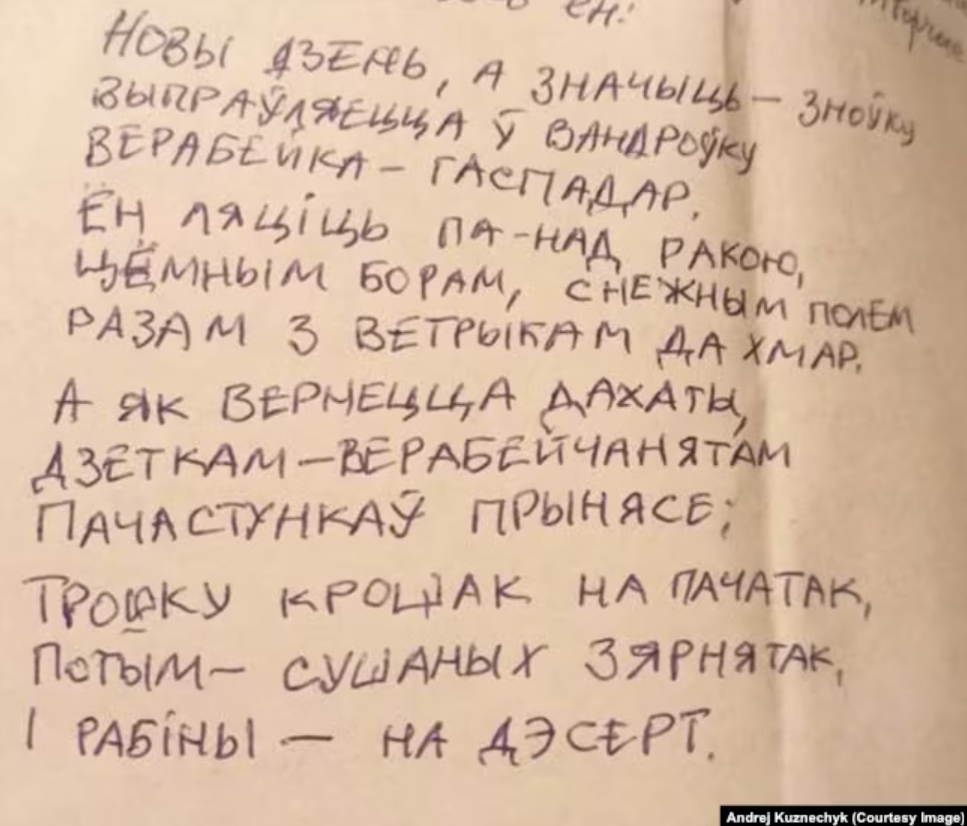 ён:
Новы дзень, а значыць – зноўку
выпраўляецца ў вандроўку
верабейка – гаспадар.
Ён ляціць па-над ракою,
цёмным борам, снежным полем
разам з ветрыкам да хмар.
А як вернецца дахаты,
дзеткам – верабейчанятам
пачастункаў прынясе;
трошку крошак на пачатак,
потым – сушаных зярнятак,
і рабіны – на дэсерт.
Andrej Kuznechyk (Courtesy Image)